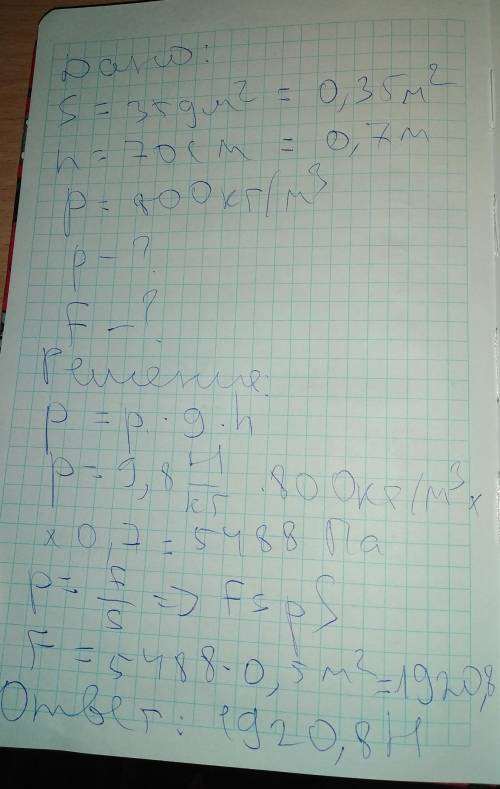 Дано:
S = 35дм² = 0,35м²
h = 70см = 0,7м
р = 800кг/м³
р - ?
F - ?
Решение:
р = р · g · h
р = 9,8 Н/кг · 800кг/м³ х
х 0,7 = 5488 Па
р = F/S => F = pS
F = 5488 · 0,5м² = 1920,8
Ответ: 1920,8Н